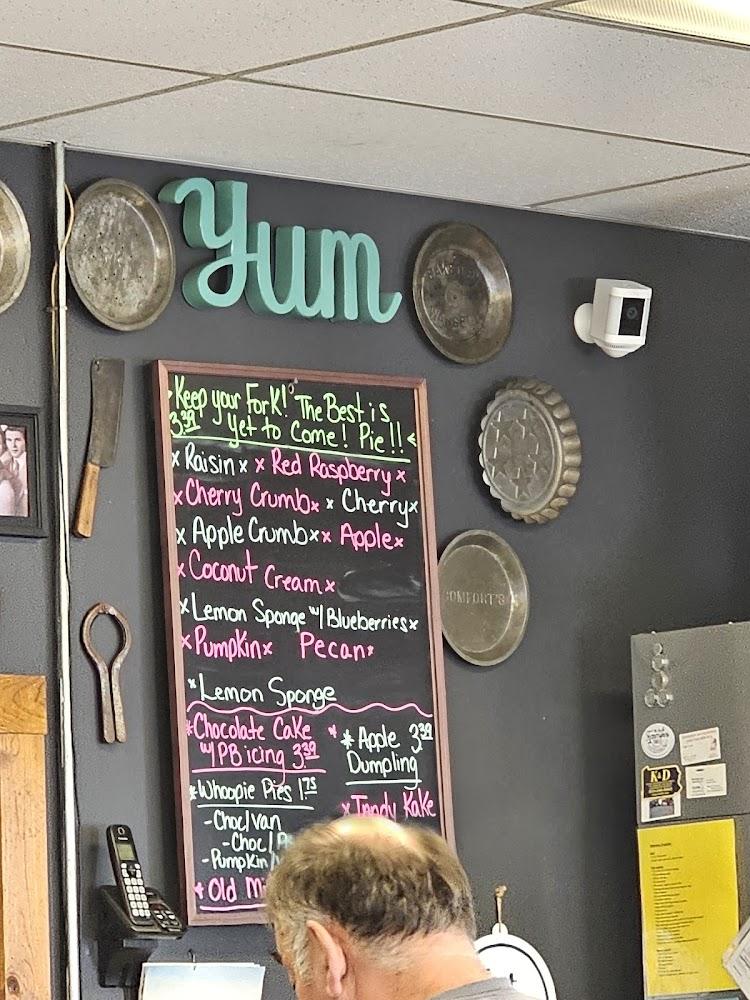 Yum
Keep your Fork! The Best is
3.39 Yet to Come! Pie!!
x Raisin x x Red Raspberry x
x Cherry Crumb x x Cherry x
x Apple Crumb x x Apple x
x Coconut Cream x
x Lemon Sponge w/ Blueberries x
x Pumpkin x Pecan x
x Lemon Sponge
* Chocolate Cake
w/ PB icing 3.39
* Apple 3.39
Dumpling
* Whoopie Pies 1.75
x Tandy Kake
- Choc/Van
- Choc/
- Pumpkin/
* Old
COMFORT'S
K&D